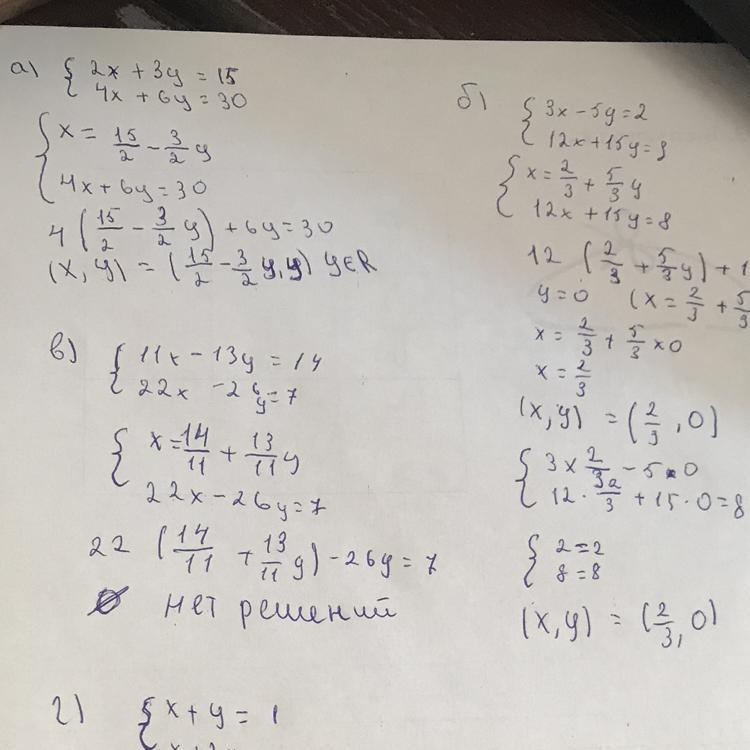 а) { 2x + 3y = 15
4x + 6y = 30
{ x = 15/2 - 3/2 y
4x + 6y = 30
4 (15/2 - 3/2 y) + 6y = 30
(x, y) = (15/2 - 3/2 y, y) y∈R
в) { 11x - 13y = 14
22x - 26y = 7
{ x = 14/11 + 13/11 y
22x - 26y = 7
22 (14/11 + 13/11 y) - 26y = 7
∅ нет решений
г) { x + y = 1
б) { 3x - 5y = 2
12x + 15y =
{ x = 2/3 + 5/3 y
12x + 15y = 8
12 (2/3 + 5/3 y) + 1
y = 0 (x = 2/3 + 5/3
x = 2/3 + 5/3 × 0
x = 2/3
(x, y) = (2/3, 0)
{ 3 × 2/3 - 5 · 0
12 · 2/3 + 15 · 0 = 8
{ 2 = 2
8 = 8
(x, y) = (2/3, 0)